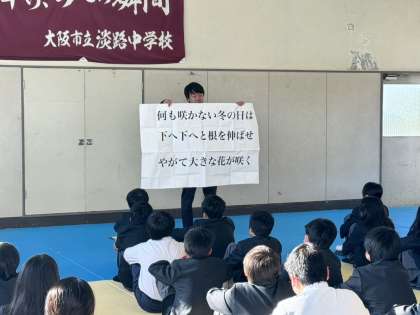 瞬間
大阪市立淡路中学校
何も咲かない冬の日は
下へ下へと根を伸ばせ
やがて大きな花が咲く